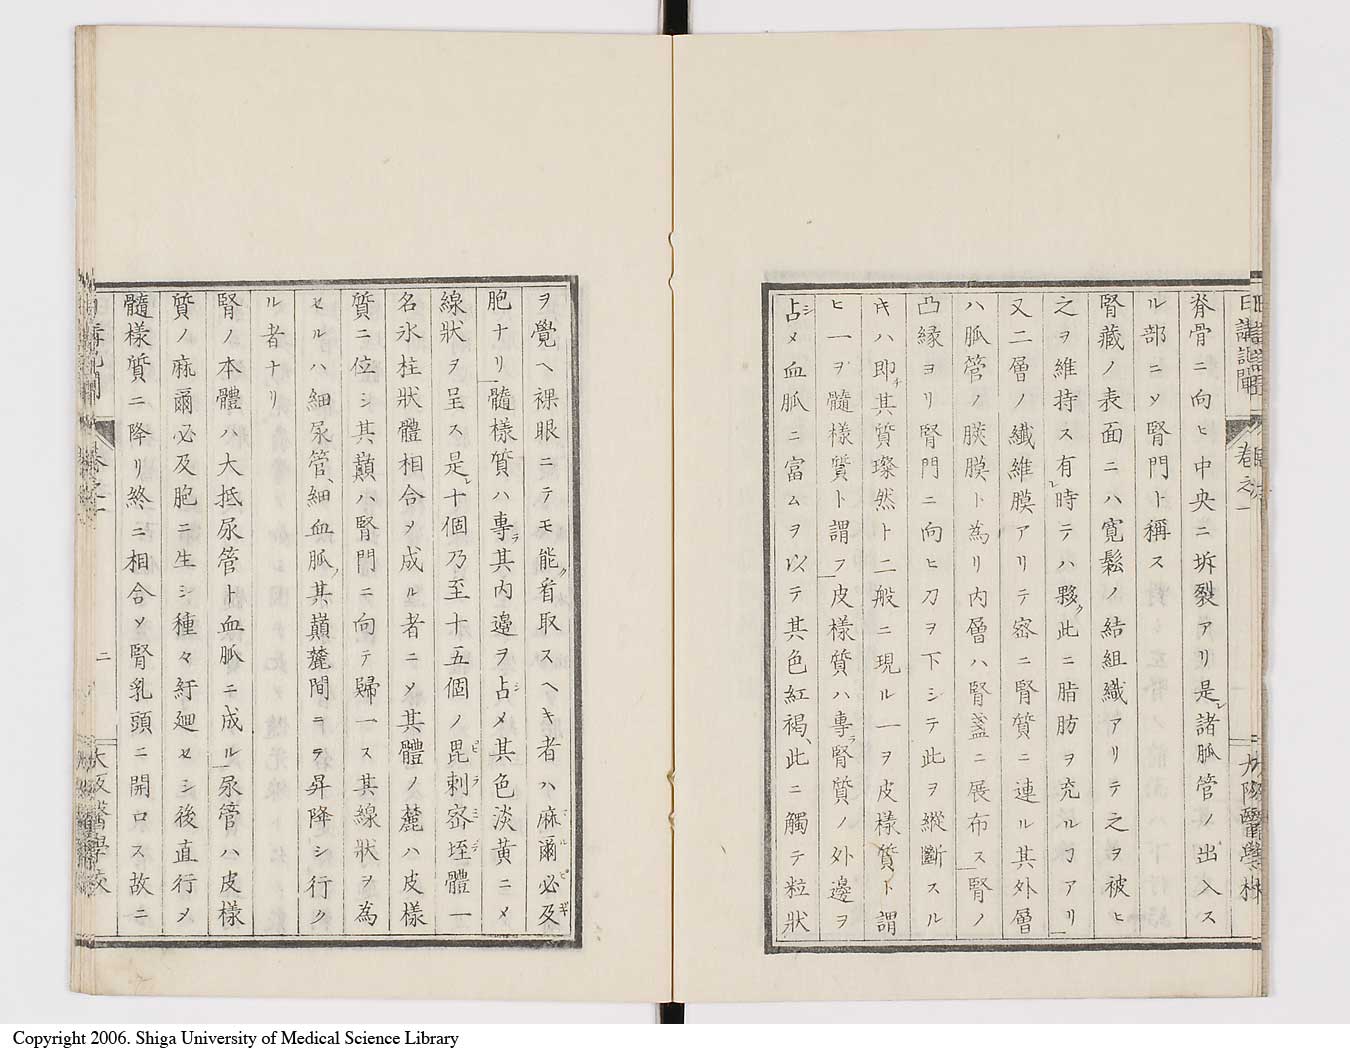 日講記聞 卷之一
脊骨ニ向ヒ中央ニ坼裂アリ是レ諸脈管ノ出入ス
ル部ニソ腎門ト稱ス
腎藏ノ表面ニハ寛鬆ノ結組織アリテ之ヲ被ヒ
之ヲ維持ス有レ時テハ夥ク此ニ脂肪ヲ充ルヿアリ
又二層ノ纖維膜アリテ密ニ腎質ニ連ル其外層
ハ脈管ノ膜ト為リ内層ハ腎盞ニ展布ス腎ノ
凸縁ヨリ腎門ニ向ヒ刀ヲ下シテ此ヲ縱斷スル
キハ即チ其質璨然ト二般ニ現ル一ヲ皮樣質ト謂
ヒ一ヲ髓樣質ト謂フ皮樣質ハ專ラ腎質ノ外邊ヲ
占シメ血脈ニ富ムヲ以テ其色紅褐、此ニ觸テ粒狀
ヲ覺ヘ裸眼ニテモ能ク看取スヘキ者ハ麻爾必及
胞ナリ髓樣質ハ專ラ其内邊ヲ占シメ其色淡黄ニメ
線狀ヲ呈ス是レ十個乃至十五個ノ毘剌密垤體一
名氷柱狀體相合メ成ル者ニソ其體ノ麓ハ皮樣
質ニ位シ其巔ハ腎門ニ向テ歸一ス其線狀ヲ為
セルハ細尿管、細血脈ノ其巔麓間ヲテ昇降シ行ク
ル者ナリ
腎ノ本體ハ大抵尿管ト血脈ニ成ル尿管ハ皮樣
質ノ麻爾必及胞ニ生シ種々紆廻セシ後直行メ
髓樣質ニ降リ終ニ相合ソ腎乳頭ニ開口ス故ニ
二
大阪醫學校
Copyright 2006. Shiga University of Medical Science Library